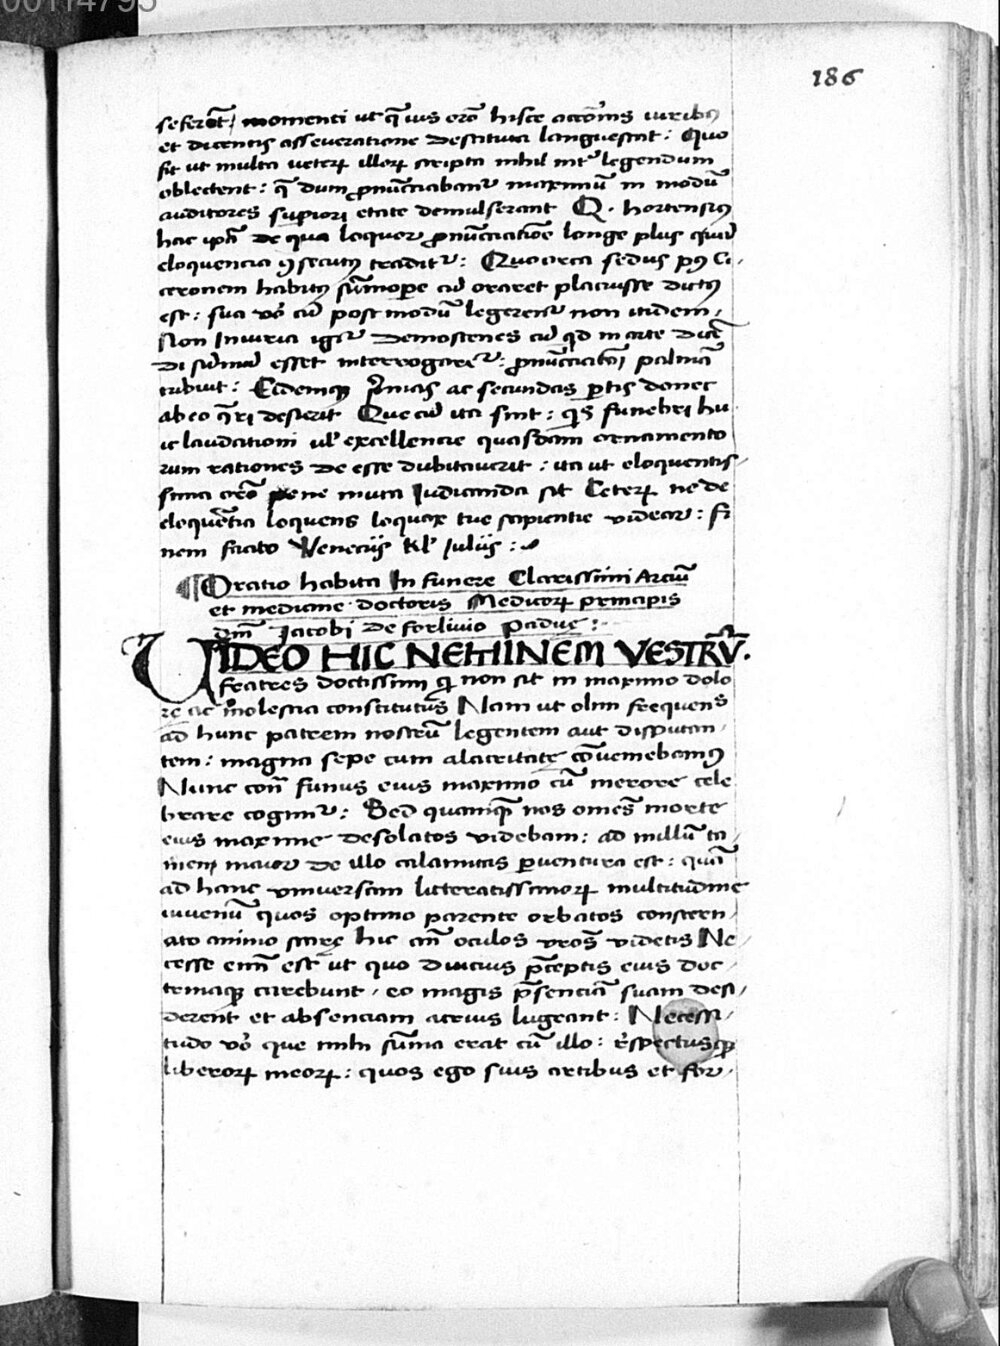 00114795
186
seferat / momenti ut q̄ uis erāt hisce accōīns iuribꝯ
et dicentis asseueratione destituta languescat : Quo
fit ut multa ueterꝝ illorꝝ scripta nihil int̄ legendum
oblectent : q̄ dum ꝓnūciabant᷑ maximū in modū
auditores supiori etate demulserant Q. hortensiꝯ
hac ip̄a de qua loquor ꝓnūciatiōe longe plus quā
eloquencia ꝯsecutꝯ tradit᷑ : Quocirca sedus pꝯ Ci-
ceronem habitꝯ sūmope cū oraret placuisse dictꝯ
est : sua ūo cū post modū legerent᷑ non itidem /
Non Iniuria igit᷑ demostenes cū qd in arte dicē
di sūmū esset interrogaret᷑ : ꝓnūciatōi palmā
tribuit : Eidemqꝫ p̄mas ac secundas ptis donec
ab eo q̄ri desierit Que cū ita sint : qs funebri hu
ic laudationi ul excellencie quasdam ornamento
rum rationes de esse dubitauerit : ita ut eloquentis-
sima orō pene muta Iudicanda sit Ceterꝝ ne de
eloquētia loquens loquax tue sapientie videar : fi
nem facio Veneciis kl Iuliis :
Oratio habita In funere Clarissimi Arciū
et medicine doctoris Medicorꝝ principis
dn̄i Jacobi de forliuio Padue :
VIDEO HIC NEMINEM VESTRV̄.
fratres doctissimi q̄ non sit in maximo dolo
re ac molestia constitutus Nam ut olim frequens
ad hunc patrem nostrū legentem aut disputan-
tem : magna sepe cum alacritate cōueniebamꝯ
Nunc con̄ funus eius maximo cū merore cele
brare cogimur᷑ : Sed quamqꝫ nos omēs morte
eius maxime desolatos videbam : ad nullū ta-
men maior de illo calamitas puentura est : quā
ad hanc vniuersam litteratissimorꝝ multitudine
iuuenū quos optimo parente orbatos constern-
ato animo stare hic an̄ oculos vr̄os videtis Ne-
cesse enī est ut quo diucius p̄ceptis eius doc-
temaqꝫ carebunt / eo magis p̄senciā suam desi-
derent et absenciam acrius lugeant : Necessi-
tudo ūo que mihi sūma erat cū illo : respectusqꝫ
liberorꝝ meorꝝ : quos ego suis artibus et for-